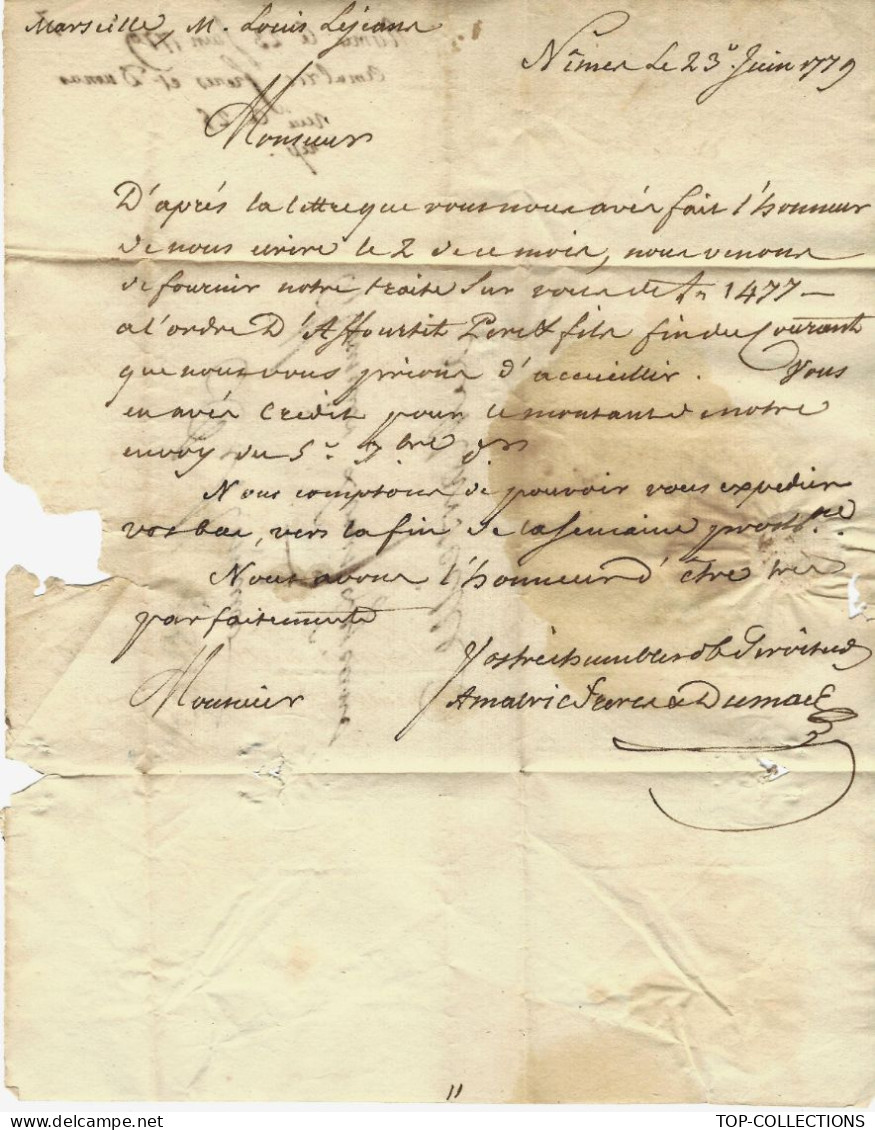 Marseille M. Louis Lejeans
Nîmes Le 23e. Juin 1779
Monsieur
D'aprés la lettre que vous nous avés fait l'honneur
de nous ecrire le 2 de ce mois, nous venons
de fournir notre traite sur vous de 1477 —
a l'ordre D'Affourtit Pere & fils fin du Courant
que nous vous prions d'accueillir. Vous
en avés Credit pour le montant de notre
envoy du 5e. 7.bre
Nous comptons de pouvoir vous expedier
vos bas, vers la fin de la semaine proch.ne
Nous avons l'honneur d'être tres
parfaitement
Monsieur
Vos tres humbles ob Serviteurs
Amalric Freres & Dumas
11
TOP-COLLECTIONS